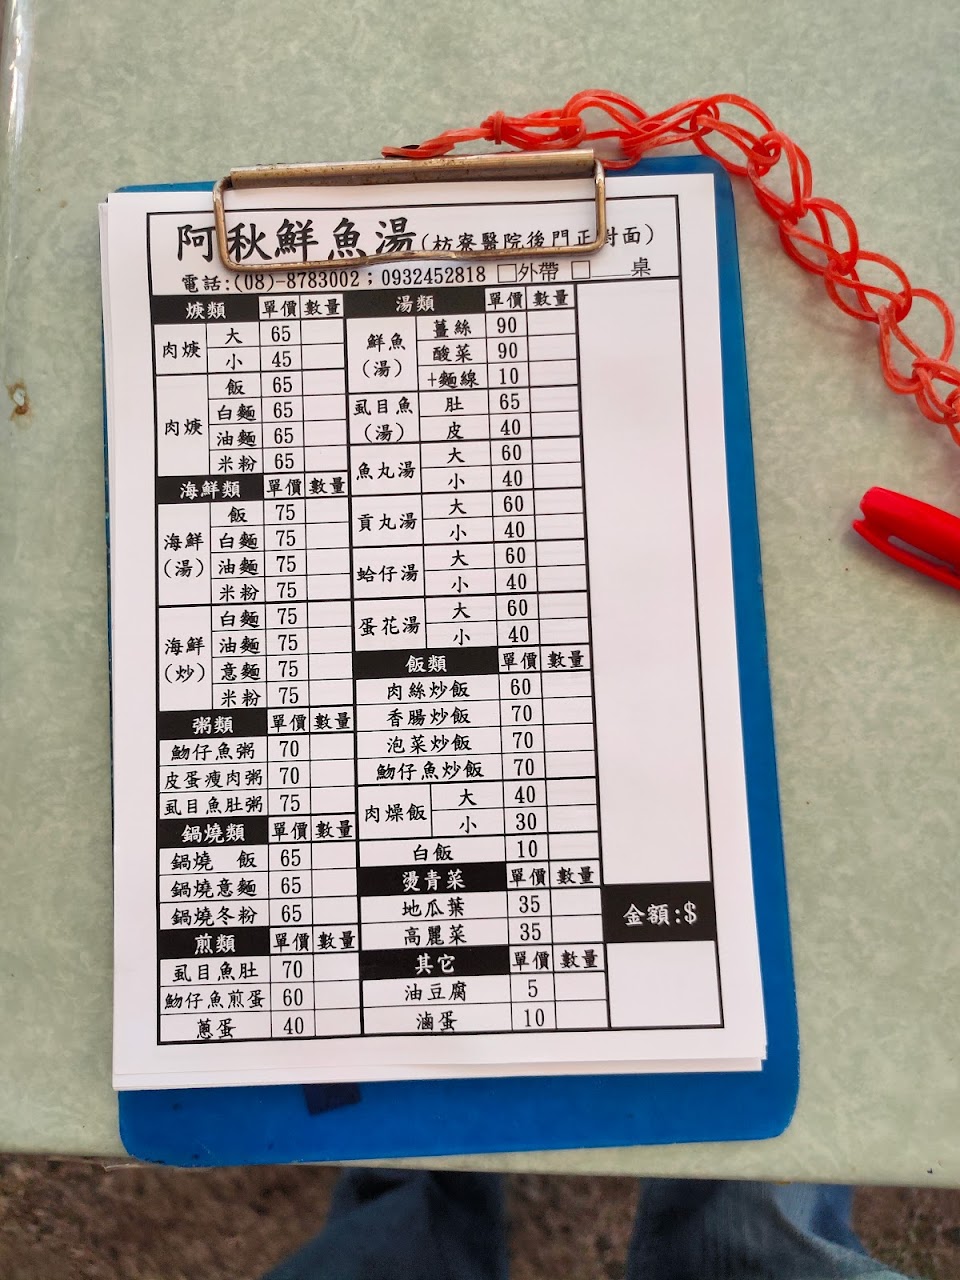 阿秋鮮魚湯(枋寮醫院後門正對面)
電話:(08)-8783002；0932452818 □外帶 □___桌
焿類 單價 數量
肉焿 大 65
小 45
肉焿 飯 65
白麵 65
油麵 65
米粉 65
海鮮類 單價 數量
海鮮(湯) 飯 75
白麵 75
油麵 75
米粉 75
海鮮(炒) 白麵 75
油麵 75
意麵 75
米粉 75
粥類 單價 數量
魩仔魚粥 70
皮蛋瘦肉粥 70
虱目魚肚粥 75
鍋燒類 單價 數量
鍋燒 飯 65
鍋燒意麵 65
鍋燒冬粉 65
煎類 單價 數量
虱目魚肚 70
魩仔魚煎蛋 60
蔥蛋 40
湯類 單價 數量
鮮魚(湯) 薑絲 90
酸菜 90
+麵線 10
虱目魚(湯) 肚 65
皮 40
魚丸湯 大 60
小 40
貢丸湯 大 60
小 40
蛤仔湯 大 60
小 40
蛋花湯 大 60
小 40
飯類 單價 數量
肉絲炒飯 60
香腸炒飯 70
泡菜炒飯 70
魩仔魚炒飯 70
肉燥飯 大 40
小 30
白飯 10
燙青菜 單價 數量
地瓜葉 35
高麗菜 35
其它 單價 數量
油豆腐 5
滷蛋 10
金額:$